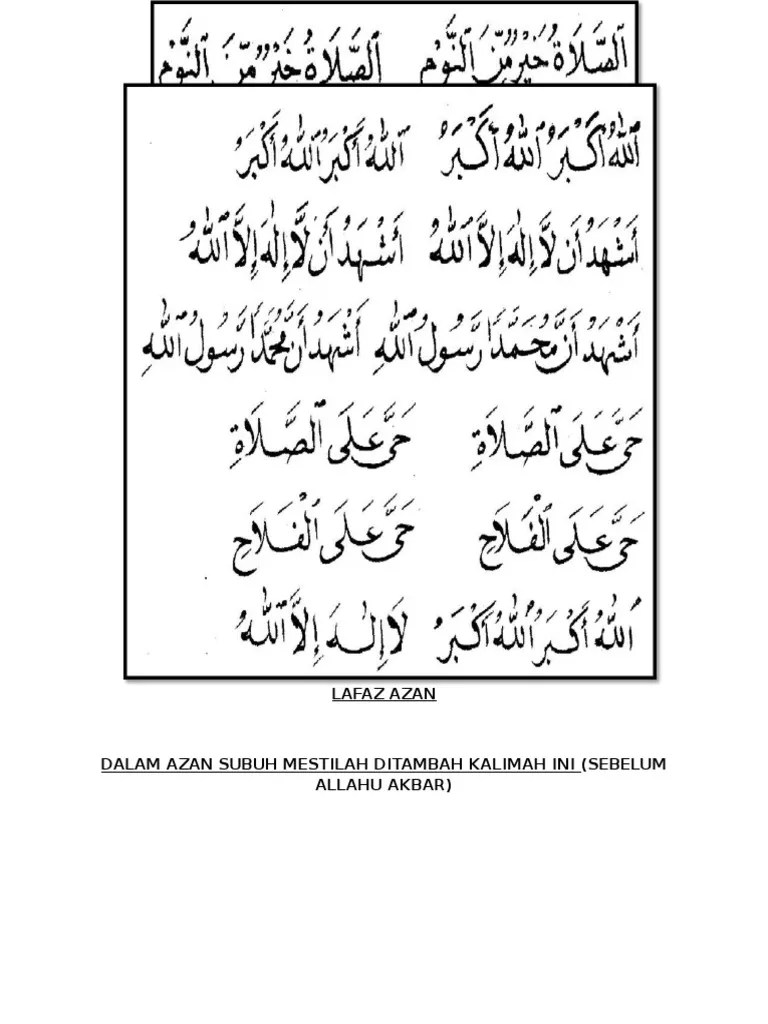 اَلصَّلَاةُ خَيْرٌ مِّنَ النَّوْمِ اَلصَّلَاةُ خَيْرٌ مِّنَ النَّوْمِ
اَللهُ أَكْبَرُ اَللهُ أَكْبَرُ اَللهُ أَكْبَرُ اَللهُ أَكْبَرُ
أَشْهَدُ أَن لَّا إِلٰهَ إِلَّا اللهُ أَشْهَدُ أَن لَّا إِلٰهَ إِلَّا اللهُ
أَشْهَدُ أَنَّ مُحَمَّدًا رَّسُولُ اللهِ أَشْهَدُ أَنَّ مُحَمَّدًا رَّسُولُ اللهِ
حَيَّ عَلَى الصَّلَاةِ حَيَّ عَلَى الصَّلَاةِ
حَيَّ عَلَى الْفَلَاحِ حَيَّ عَلَى الْفَلَاحِ
اَللهُ أَكْبَرُ اَللهُ أَكْبَرُ لَا إِلٰهَ إِلَّا اللهُ
LAFAZ AZAN
DALAM AZAN SUBUH MESTILAH DITAMBAH KALIMAH INI (SEBELUM
ALLAHU AKBAR)